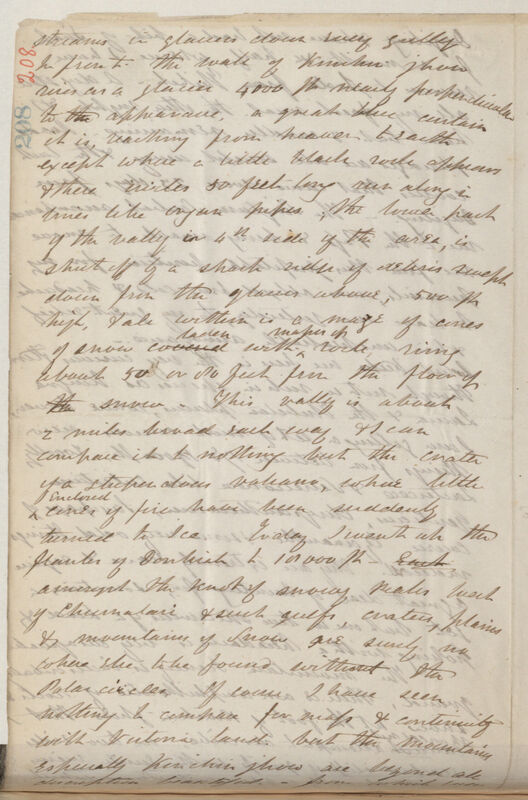 208
208
streams in glaciers down very gently
In front the wall of Kinchin jhow
rises as a glacier 4000 ft nearly perpendicular
to the appearance, a great blue curtain
it is, reaching from heaven to Earth
except where a little black rock appears
& there icicles 50 feet long run along in
lines like organ pipes, the lower part
of the valley or 4th side of the area, is
shut off by a short ridge of debris swept
down from the glaciers above, 500 ft
high, & all within is a maze of cones
of snow covered laden with masses of rock, rising
about 50 or 80 feet from the floor of
the snow. This valley is about
2 miles broad each way & I can
compare it to nothing but the crater
of a stupendous volcano, whose little
Enclosed cones of fire have been suddenly
turned to Ice. Today I went up the
flanks of Donkiah to 19000 ft — Each
amongst the knot of snowy peaks West
of Chumalari & such gulfs, craters, plains
& mountains of Snow are surely no
where else to be found without the
Polar circles. Of course I have seen
nothing to compare for mass & continuity
with Victoria land. but the mountains
especially Kinchin jhow are beyond all
description beautiful — from which